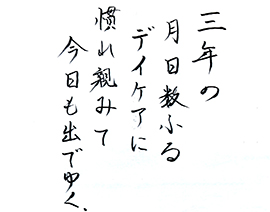 三年の
月日数ふる
デイケアに
慣れ親みて
今日も出でゆく、